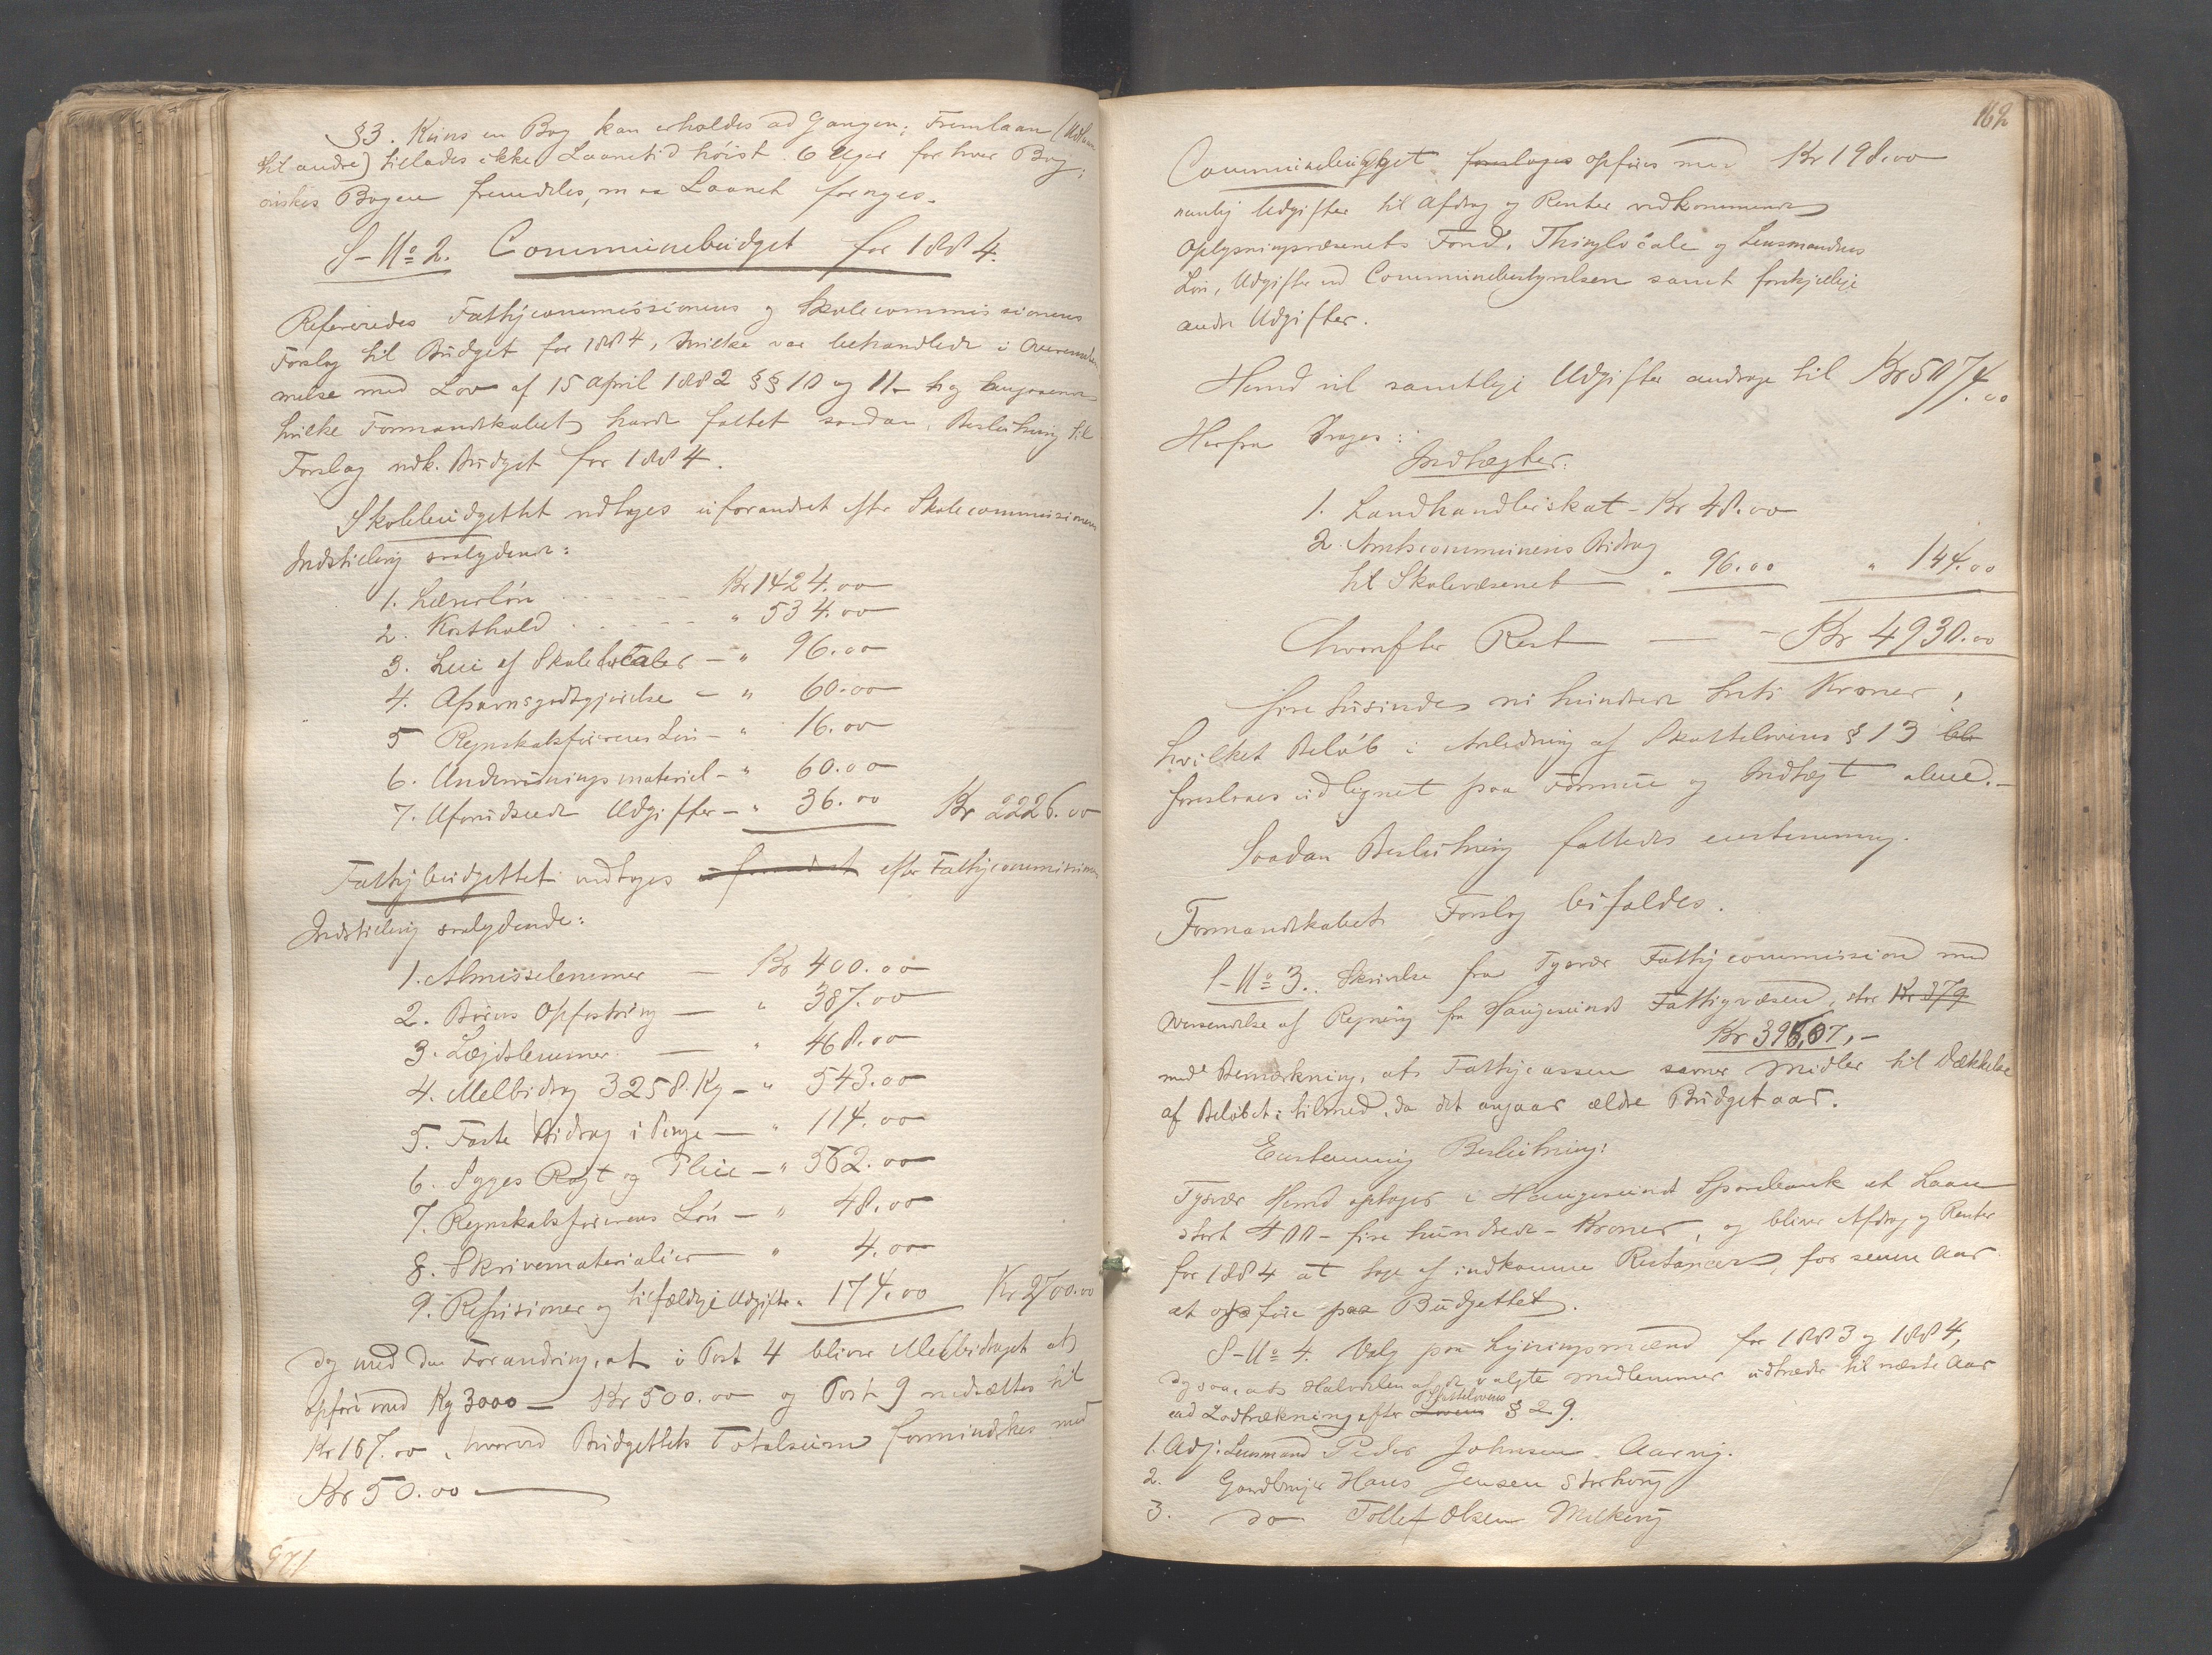 §3. Kuns en Bog kan erholdes ad Gangen; Fremlaan (Udlaan
til andre) tillades ikke. Laanetid høist 6 Uger for hver Bog;
ønskes Bogen fremdeles, maa Laanet fornyes.
S-No 2. Communebudget for 1884.
Refereredes Fattigcommissionens og Skolecommissionens
Forslag til Budget for 1884, hvilke var behandlede i Overensstem
melse med Lov af 15 April 1882 §§ 10 og 11 - angaaende
hvilke Formandskabet havde fattet saadan Beslutning til
Forslag vdk. Budget for 1884.
Skolebudgettet vedtoges uforandret efter Skolecommissionens
Indstilling saalydende:
1. Lærerløn - Kr 1424.00
2. Kosthold - " 534.00
3. Leie af Skolelocaler - " 96.00
4. Afsavnsgodtgjørelse - " 60.00
5 Regnskabsførerens Løn - " 16.00
6. Undervisningsmateriel - " 60.00
7. Uforudseede Udgifter - " 36.00 Kr 2226.00
Fattigbudgettet vedtoges uforandret efter Fattigcommissionens
Indstilling saalydende:
1. Almisselemmer - Kr 400.00
2. Børns Opfostring - " 387.00
3. Lægdslemmer - " 468.00
4. Melbidrag 3258 Kg - " 543.00
5. Faste Bidrag i Penge - " 114.00
6. Syges Røgt og Pleie - " 562.00
7. Regnskabsførerens Løn - " 48.00
8. Skrivematerialier " 4.00
9. Refusioner og tilfældige Udgifter " 174.00 Kr 2700.00
dog med den Forandring, at i Post 4 bliver Melbidraget at
opføre med Kg 3000 - Kr 500.00 og Post 9 nedsættes til
Kr 167.00, hvorved Budgettets Totalsum formindskes med
Kr 50.00
162
Communebudgetget foreslages opføres med Kr 198.00
nemlig Udgifter til Afdrag og Renter vedkommende
Oplysningsvæsenets Fond, Thinglocale og Lensmandens
Løn, Udgifter ved Communebestyrelsen samt forskjellige
andre Udgifter.
Herred vil samtlige Udgifter andrage til Kr 5074.00
Herfra drages:
Indtægter:
1. Landhandlerskat - Kr 48.00
2. Amtscommunens Bidrag
til Skolevæsenet " 96.00 " 144.00
hvorefter Rest - Kr 4930.00
fire tusinde ni hundrede treti Kroner,
hvilket Beløb i Anledning af Skattelovens § 13 ble
foreslaaes udlignet paa Formue og Indtægt alene.-
Saadan Beslutning fattedes enstemmig.
Formandskabets Forslag bifaldes.
S-No 3. Skrivelse fra Tysvær Fattigcommission med
Oversendelse af Regning fra Haugesunds Fattigvæsend, stor Kr 379
Kr 396,07,-
med Bemærkning, at Fattigcassen savner Midler til Dækkelse
af Beløbet; tilmed, da det angaar ældre Budgetaar.
Enstemmig Beslutning:
Tysvær Herred optager i Haugesunds Sparebank et Laan
stort 400 - fire hundrede - Kroner, og bliver Afdrag og Renter
for 1884 at tage af indkomne Restancer, for senere Aar
at opføre paa Budgettet.
S-No 4. Valg paa Ligningsmænd for 1883 og 1884,
dog saa, at Halvdelen af de valgte Medlemmer udtræder til næste Aar
ved Lodtrækning efter Lovens Skattelovens § 29.
1. Adj: Lensmand Peder Johnsen Aarvig.
2. Gaardbruger Hans Jensen Storhoug
3. do Tollef Olsen